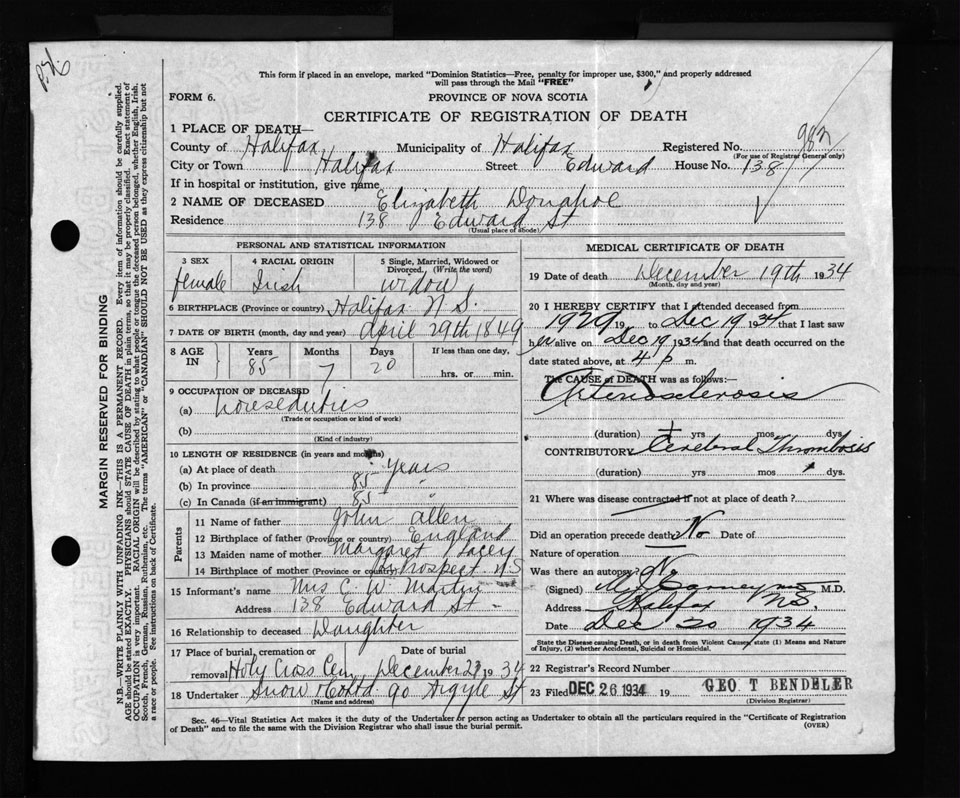 This form if placed in an envelope, marked "Dominion Statistics—Free, penalty for improper use, $300," and properly addressed
will pass through the Mail "FREE"
FORM 6.
PROVINCE OF NOVA SCOTIA
CERTIFICATE OF REGISTRATION OF DEATH
1 PLACE OF DEATH—
982
County of Halifax Municipality of Halifax Registered No.
(For use of Registrar General only)
City or Town Halifax Street Edward House No. 138
If in hospital or institution, give name
2 NAME OF DECEASED Elizabeth Donahoe
Residence 138 Edward St
(Usual place of abode)
PERSONAL AND STATISTICAL INFORMATION
3 SEX 4 RACIAL ORIGIN 5 Single, Married, Widowed or Divorced, (Write the word)
female Irish widow
6 BIRTHPLACE (Province or country) Halifax N S.
7 DATE OF BIRTH (month, day and year) April 29th 1849
8 AGE IN Years Months Days If less than one day,
85 7 20 hrs. or min.
9 OCCUPATION OF DECEASED
(a) houseduties
(Trade or occupation or kind of work)
(b)
(Kind of industry)
10 LENGTH OF RESIDENCE (in years and months)
(a) At place of death years
(b) In province 85 "
(c) In Canada (if an immigrant) 85 "
Parents
11 Name of father John Allen
12 Birthplace of father (Province or country) England
13 Maiden name of mother Margaret Lacey
14 Birthplace of mother (Province or country) Prospect NS
15 Informant's name Mrs C. W. Martin
Address 138 Edward St
16 Relationship to deceased Daughter
17 Place of burial, cremation or removal Date of burial
Holy Cross Cem December 21 1934
18 Undertaker Snow & Co Ltd 90 Argyle St
(Name and address)
MEDICAL CERTIFICATE OF DEATH
19 Date of death December 19th 1934
(Month, day and year)
20 I HEREBY CERTIFY that I attended deceased from
1929 19 to Dec 19 1934 that I last saw
her alive on Dec 19 1934 and that death occurred on the
date stated above, at 4 p m.
The CAUSE of DEATH was as follows:—
Arteriosclerosis
(duration) yrs mos dys.
CONTRIBUTORY Cerebral Thrombosis
(duration) yrs mos dys.
21 Where was disease contracted if not at place of death?
Did an operation precede death? No Date of
Nature of operation
Was there an autopsy? No
(Signed) M.D.
Address Halifax NS
Date Dec 20 1934
State the Disease causing Death, or in death from Violent Causes, state (1) Means and Nature
of Injury, (2) whether Accidental, Suicidal or Homicidal.
22 Registrar's Record Number
23 Filed DEC 26 1934 19 GEO T BENDELER
(Division Registrar)
Sec. 46—Vital Statistics Act makes it the duty of the Undertaker or person acting as Undertaker to obtain all the particulars required in the "Certificate of Registration
of Death" and to file the same with the Division Registrar who shall issue the burial permit.
(OVER)
MARGIN RESERVED FOR BINDING
N.B.—WRITE PLAINLY WITH UNFADING INK—THIS IS A PERMANENT RECORD. Every item of information should be carefully supplied.
AGE should be stated EXACTLY. PHYSICIANS should STATE CAUSE OF DEATH in plain terms, so that it may be properly classified. Exact statement of
OCCUPATION is very important. RACIAL ORIGIN will be described by stating to what people or tongue the deceased person belonged, whether English, Irish,
Scotch, French, German, Russian, Ruthenian, etc. The terms "AMERICAN" or "CANADIAN" SHOULD NOT BE USED as they express citizenship but not
a race or people. See instructions on back of Certificate.